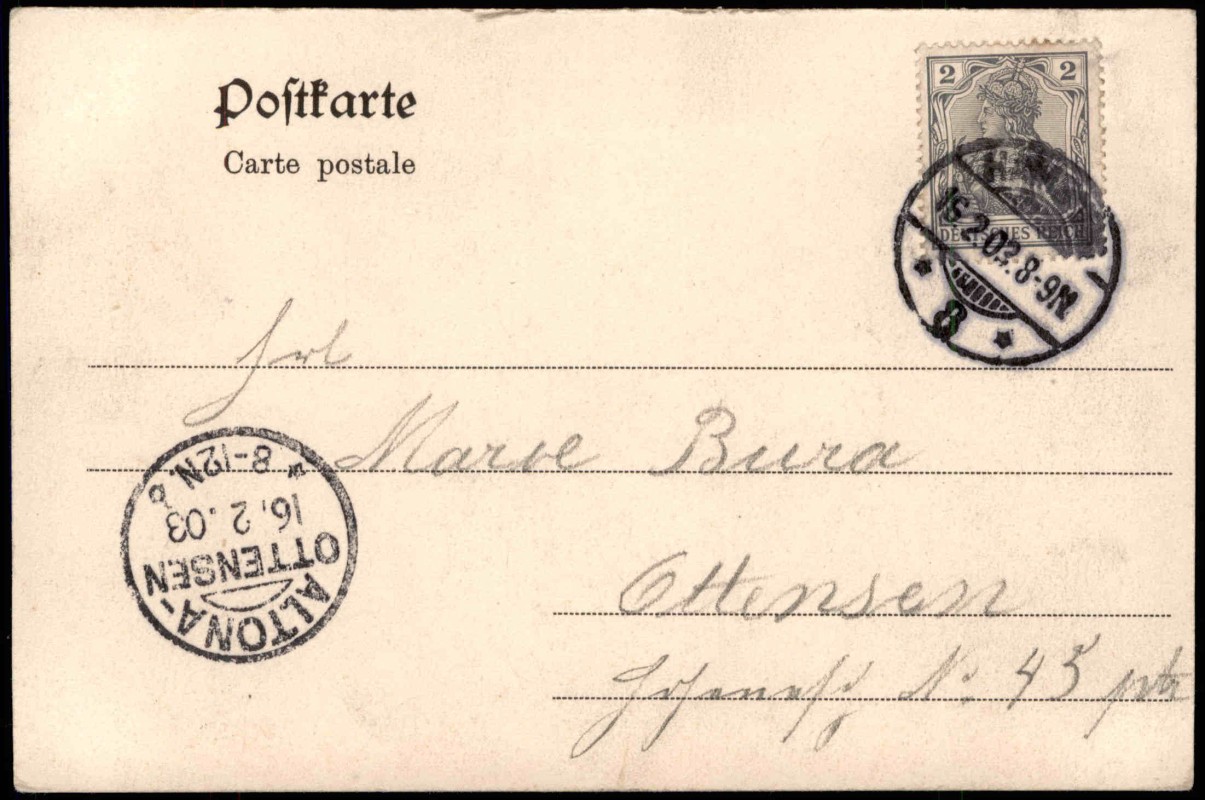 Postkarte
Carte postale
2 2
DEUTSCHES REICH
16.2.03.8-9N
8
Frl
Marie Bura
8-12N
16.2.03
ALTONA-
OTTENSEN
Ottensen
No 45 ptr